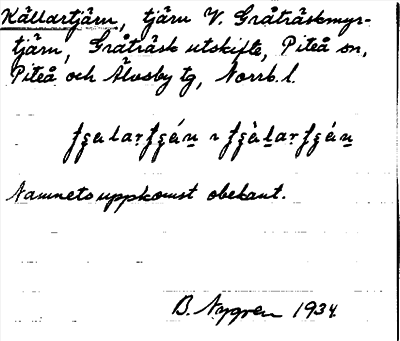 Källartjärn, tjärn V. Gråträskmyr-
tjärn, Gråträsk utskifte, Piteå sn,
Piteå och Älvsby tg, Norrb. l.
Namnets uppkomst obekant.
B. Nygren 1934